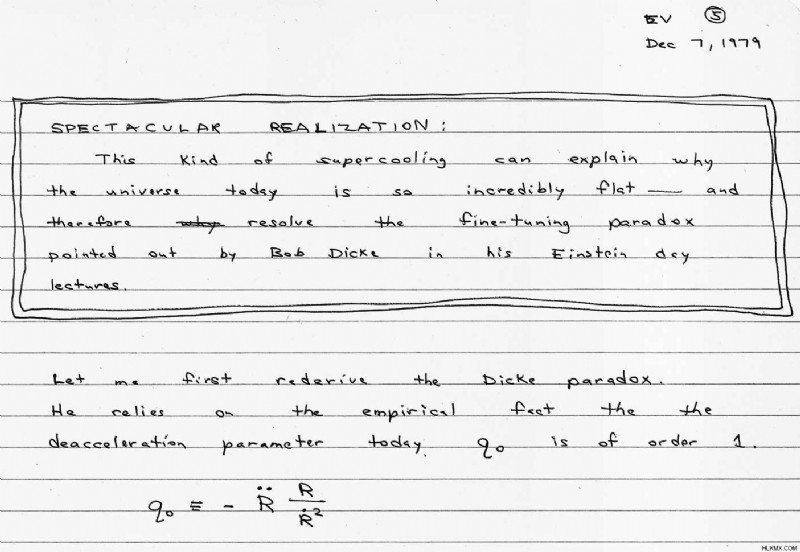 EV ⑤
Dec 7, 1979
SPECTACULAR REALIZATION:
This kind of supercooling can explain why
the universe today is so incredibly flat — and
therefore why resolve the fine-tuning paradox
pointed out by Bob Dicke in his Einstein day
lectures.
Let me first rederive the Dicke paradox.
He relies on the empirical fact the the
deacceleration parameter today q₀ is of order 1.
q₀ ≡ - R̈ R/Ṙ²
HLKMX.COM